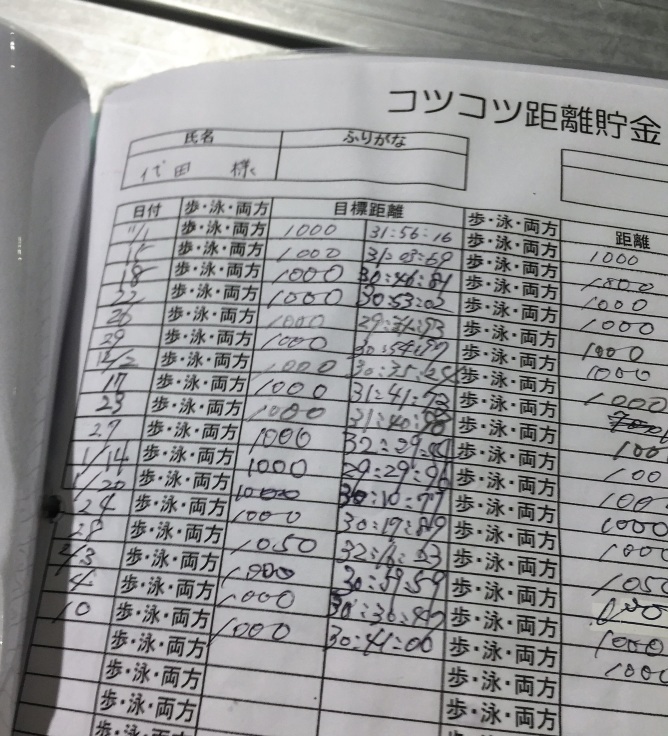 コツコツ距離貯金
氏名 ふりがな
代田 様
日付 歩・泳・両方 目標距離 歩・泳・両方 距離
11/1 歩・泳・両方 1000 31:56:16 歩・泳・両方 1000
15 歩・泳・両方 1000 歩・泳・両方
18 歩・泳・両方 1000 30:46:81 歩・泳・両方 1000
22 歩・泳・両方 1000 30:53:02 歩・泳・両方 1000
26 歩・泳・両方 1000 歩・泳・両方 1000
29 歩・泳・両方 1000 30:54:97 歩・泳・両方 1000
12/2 歩・泳・両方 1000 歩・泳・両方 1000
17 歩・泳・両方 1000 31:41:73 歩・泳・両方
23 歩・泳・両方 1000 歩・泳・両方 100
27 歩・泳・両方 1000 歩・泳・両方 100
1/14 歩・泳・両方 1000 29:29:96 歩・泳・両方 100
1/20 歩・泳・両方 1000 30:10:77 歩・泳・両方 1000
24 歩・泳・両方 1000 30:19:89 歩・泳・両方 1000
28 歩・泳・両方 1050 歩・泳・両方 105
2/3 歩・泳・両方 1000 30:59:59 歩・泳・両方
4 歩・泳・両方 1000 歩・泳・両方 1000
10 歩・泳・両方 1000 30:41:00 歩・泳・両方 1000
歩・泳・両方 歩・泳・両方
歩・泳・両方 歩・泳・両方
歩・泳・両方